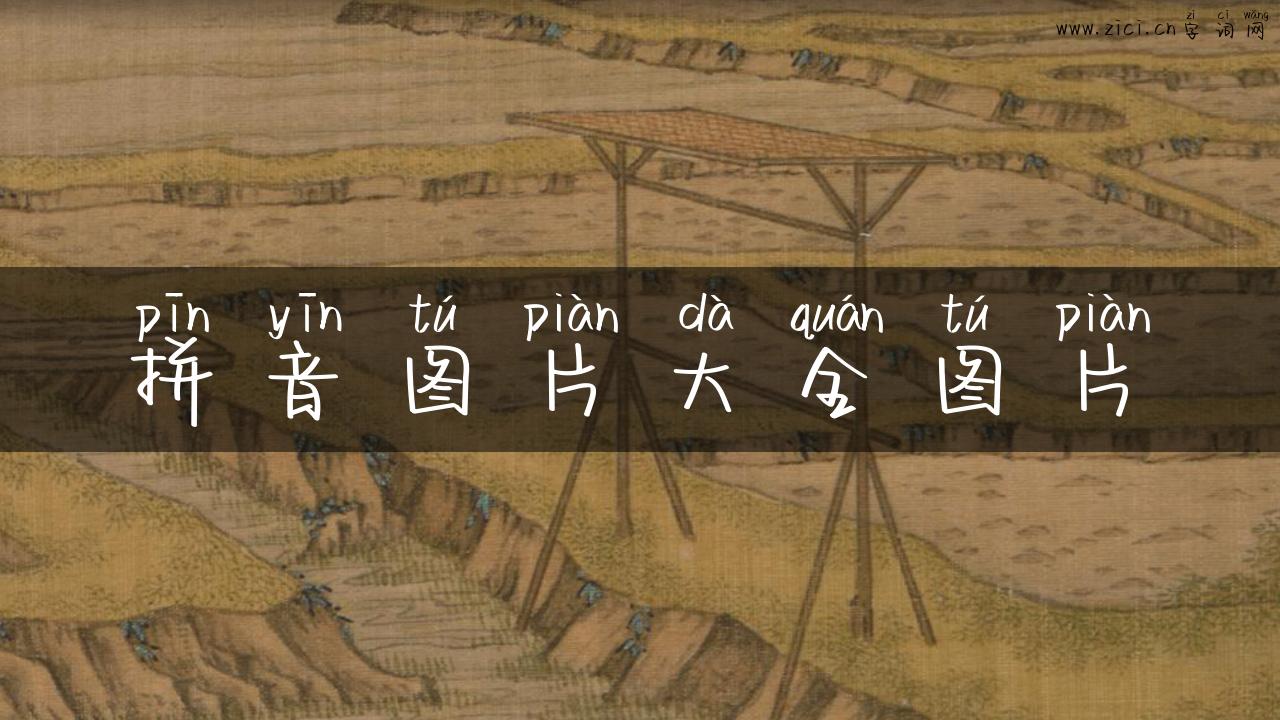 zì cí wǎng
www.zici.cn 字词网
pīn yīn tú piàn dà quán tú piàn
拼音图片大全图片